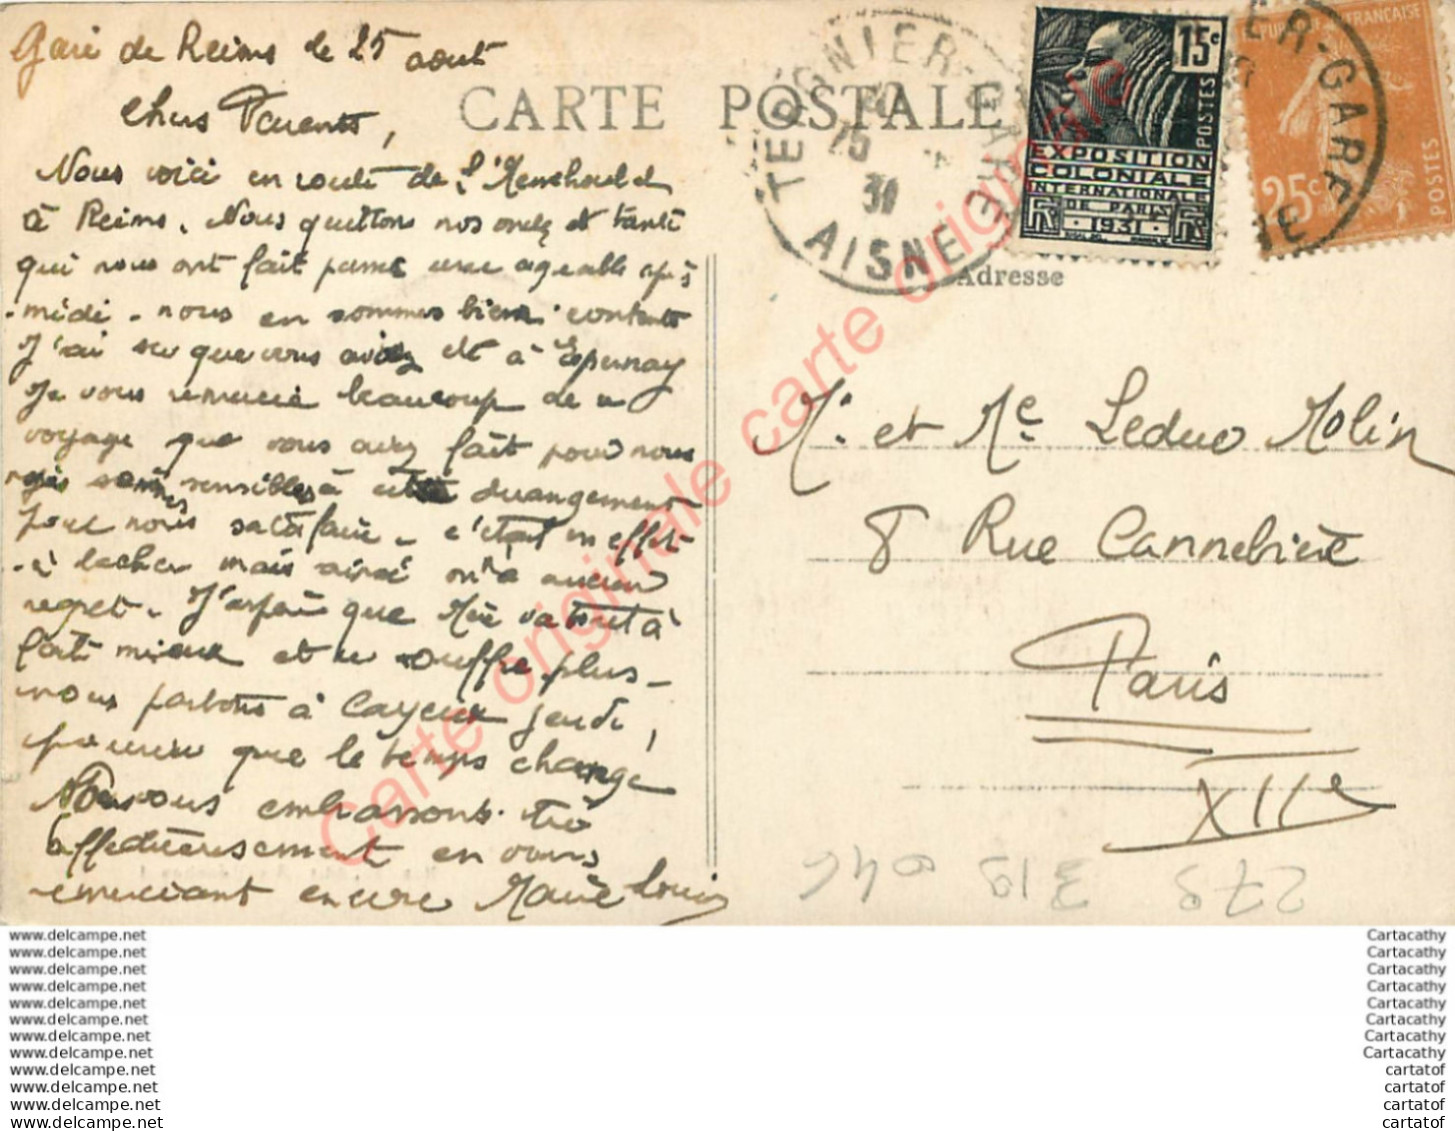 Gare de Reims le 25 aout
CARTE POSTALE
TERGNIER-GARE
15
31
AISNE
15c
POSTES
EXPOSITION
COLONIALE
INTERNATIONALE
DE PARIS
1931
25c
POSTES
chers Parents,
Nous voici en route de
à Reims. Nous quittons nos oncle et tante
qui nous ont fait passer une agreable après
-midi. nous en sommes bien contents
J'ai su que vous aviez été à Epernay
Je vous remercie beaucoup de ce
voyage que vous avez fait pour nous
sensibles à cette derangement
pour nous satisfaire. c'était en effet
mais ainsi on n'a aucun
regret. J'espère que Mère va tout à
fait mieux et ne souffre plus_
nous partons à Cayeux jeudi,
pourvu que le temps change
Nous vous embrassons très
affectueusement en vous
remerciant encore Marie Louis
Adresse
Mr. et Me Leduc Molin
8 Rue Cannebière
Paris
XIIe
278 319 046
Carte originale carte originale
www.delcampe.net
www.delcampe.net
www.delcampe.net
www.delcampe.net
www.delcampe.net
www.delcampe.net
www.delcampe.net
www.delcampe.net
www.delcampe.net
www.delcampe.net
www.delcampe.net
www.delcampe.net
Cartacathy
Cartacathy
Cartacathy
Cartacathy
Cartacathy
Cartacathy
Cartacathy
Cartacathy
cartatof
cartatof
cartatof
cartatof